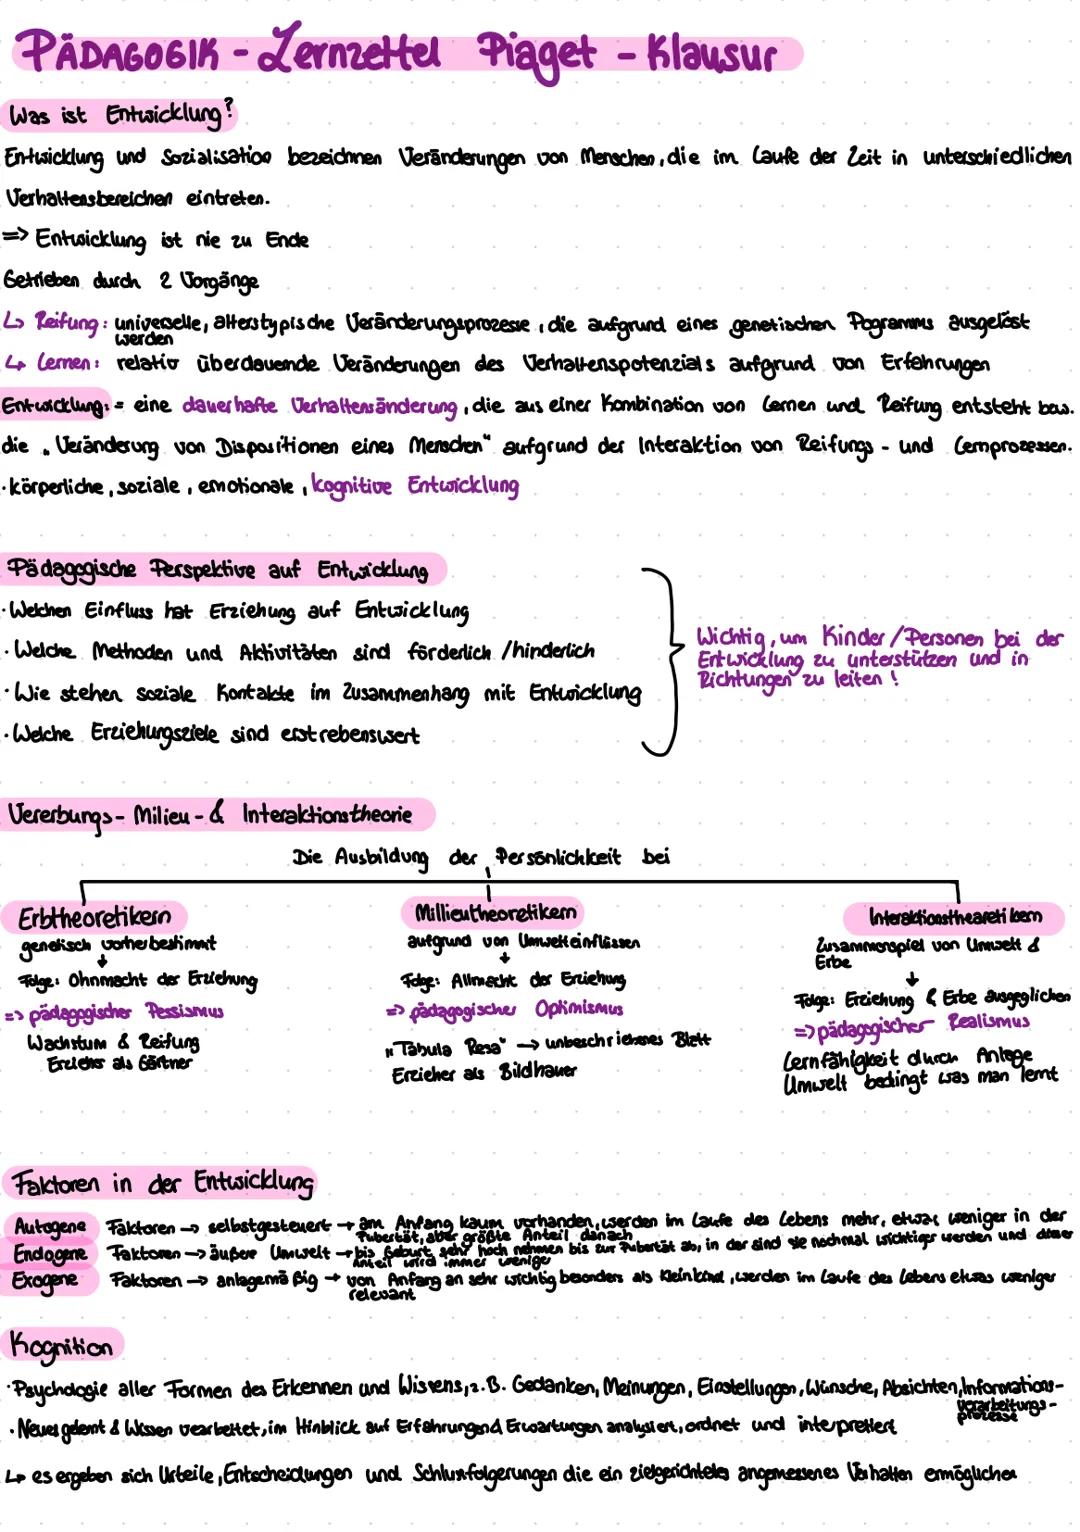 PÄDAGOGIK - Lernzettel Piaget - Klausur
Was ist Entwicklung?
Entwicklung und Sozialisation bezeichnen Veränderungen von Menschen, die im Laufe der Zeit in unterschiedlichen
Verhaltensbereichen eintreten.
=> Entwicklung ist nie zu Ende
Getrieben durch 2 Vorgänge
↳ Reifung: universelle, alterstypische Veränderungsprozesse, die aufgrund eines genetischen Pogramms ausgelöst
werden
↳ Lernen: relativ überdauernde Veränderungen des Verhaltenspotenzials aufgrund von Erfahrungen
Entwicklung: = eine dauerhafte Verhaltensänderung, die aus einer Kombination von Lernen und Reifung entsteht bzw.
die „Veränderung von Dispositionen eines Menschen" aufgrund der Interaktion von Reifungs- und Lernprozessen.
·körperliche, soziale, emotionale, kognitive Entwicklung
Pädagogische Perspektive auf Entwicklung
·Welchen Einfluss hat Erziehung auf Entwicklung
·Welche Methoden und Aktivitäten sind förderlich/hinderlich
·Wie stehen soziale Kontakte im Zusammenhang mit Entwicklung
·Welche Erziehungsziele sind erstrebenswert
Wichtig, um Kinder/Personen bei der
Entwicklung zu unterstützen und in
Richtungen zu leiten!
Vererbungs- Milieu- & Interaktionstheorie
Die Ausbildung der Persönlichkeit bei
Erbtheoretikern
genetisch vorherbestimmt
↓
Folge: Ohnmacht der Erziehung
=> pädagogischer Pessismus
Wachstum & Reifung
Erzieher als Gärtner
Millieutheoretikern
aufgrund von Umwelteinflüssen
↓
Folge: Allmacht der Erziehung
=> pädagogischer Optimismus
„Tabula Rasa" → unbeschriebenes Blatt
Erzieher als Bildhauer
Interaktionstheoretikern
Zusammenspiel von Umwelt &
Erbe
↓
Folge: Erziehung & Erbe ausgeglichen
=> pädagogischer Realismus
Lernfähigkeit durch Anlage
Umwelt bedingt was man lernt
Faktoren in der Entwicklung
Autogene Faktoren → selbstgesteuert → am Anfang kaum vorhanden, werden im Laufe des Lebens mehr, etwas weniger in der
Pubertät, aber größte Anteil danach
Endogene Faktoren → äußere Umwelt → bis Geburt sehr hoch nehmen bis zur Pubertät ab, in der sind sie nochmal wichtiger werden und dieser
Anteil wird immer weniger
Exogene Faktoren → anlagemäßig → von Anfang an sehr wichtig besonders als Kleinkind, werden im Laufe des Lebens etwas weniger
relevant
Kognition
·Psychologie aller Formen des Erkennen und Wissens, z.B. Gedanken, Meinungen, Einstellungen, Wünsche, Absichten, Informations-
verarbeitungs-
prozesse
·Neues gelernt & Wissen verarbeitet, im Hinblick auf Erfahrungen Erwartungen analysiert, ordnet und interpretiert
↳ es ergeben sich Urteile, Entscheidungen und Schlussfolgerungen die ein zielgerichtetes angemessenes Verhalten ermöglichen